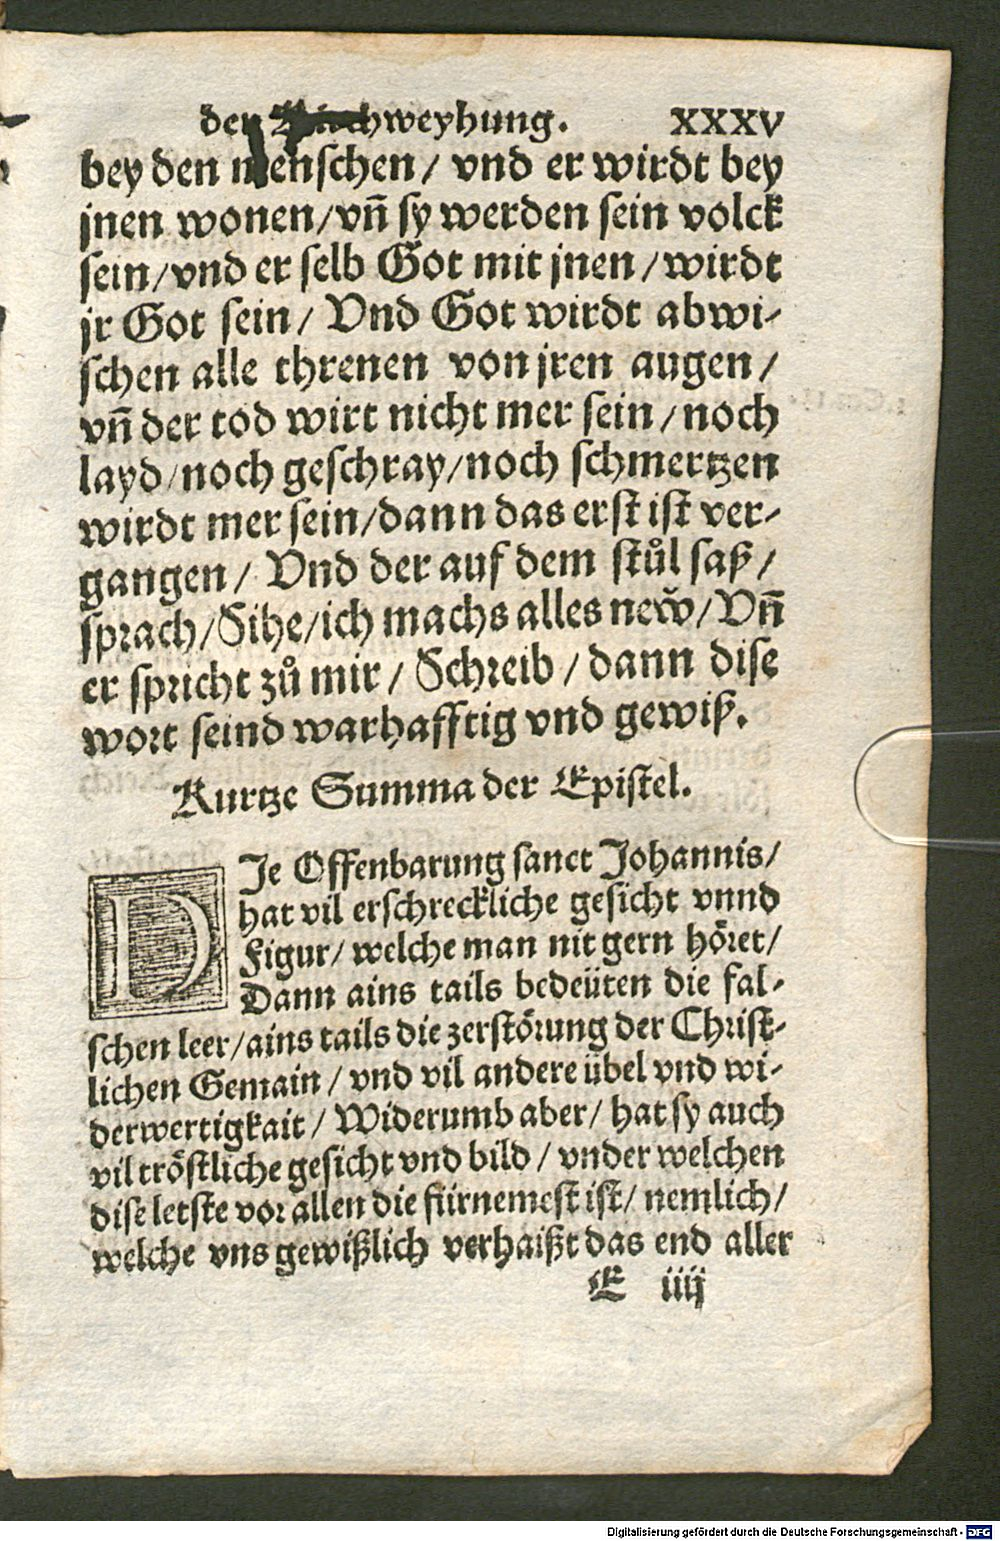 der Kirchweyhung. XXXV
bey den menschen / vnd er wirdt bey
jnen wonen/vñ sy werden sein volck
sein/vnd er selb Got mit jnen/wirdt
jr Got sein/ Vnd Got wirdt abwi⸗
schen alle threnen von jren augen/
vñ der tod wirt nicht mer sein/noch
layd/noch geschray/noch schmertzen
wirdt mer sein/dann das erst ist ver⸗
gangen/ Vnd der auf dem stůl saß/
sprach/Sihe/ich machs alles new̌/Vñ
er spricht zů mir/ Schreib/dann dise
wort seind warhafftig vnd gewiß.
Kurtze Summa der Epistel.
DIe Offenbarung sanct Johannis/
hat vil erschreckliche gesicht vnnd
Figur/ welche man nit gern höret/
Dann ains tails bedeüten die fal⸗
schen leer/ains tails die zerstörung der Christ⸗
lichen Gemain/ vnd vil andere übel vnd wi⸗
derwertigkait/ Widerumb aber/ hat sy auch
vil tröstliche gesicht vnd bild/ vnder welchen
dise letste vor allen die fürnemest ist/ nemlich/
welche vns gewißlich verhaißt das end aller
E iiij
Digitalisierung gefördert durch die Deutsche Forschungsgemeinschaft - DFG